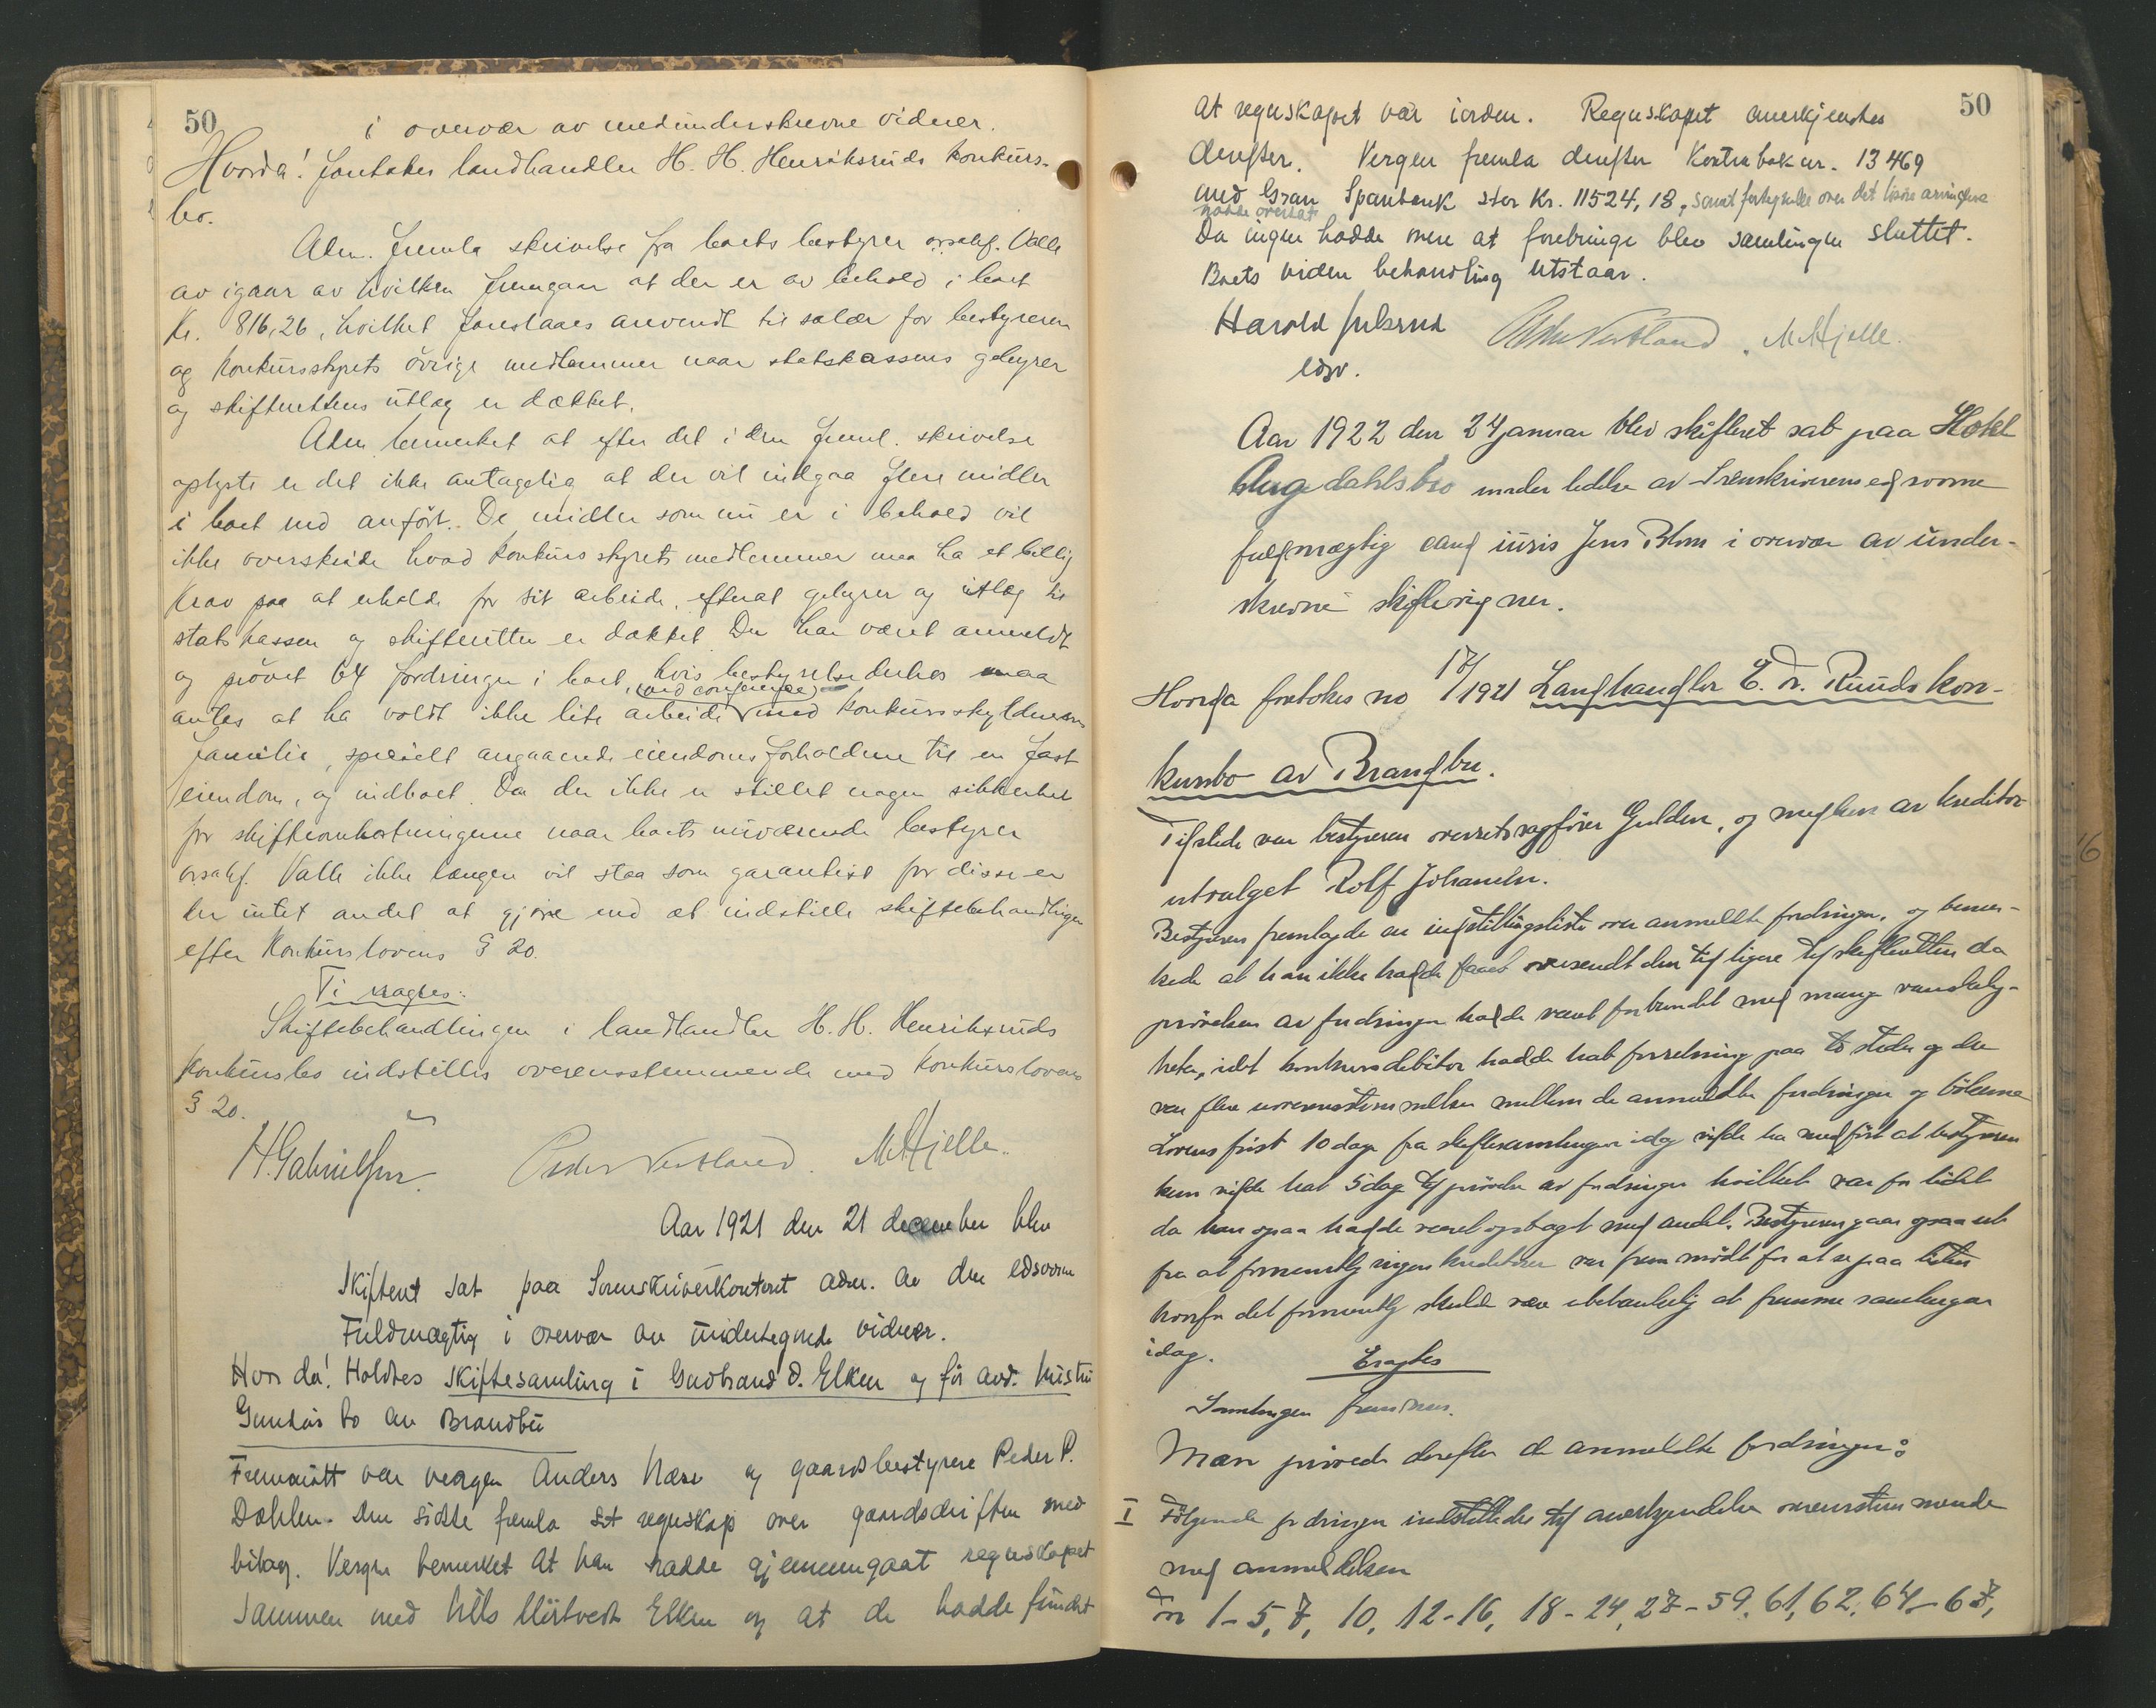 50
i overvær av medunderskrevne vidner.
Hvorda! foretokes landhandler H. H. Henriksruds konkurs-
bo.
Adm. fremla skrivelse fra boets bestyrer orsakf. Valle
av igaar av hvilken fremgaar at der er av behold i boet
Kr. 816,26, hvilket foreslaaes anvendt til salær for bestyreren
og konkursstyrets övrige medlemmer naar statskassens gebyrer
og skifterettens utlæg er dækket.
Adm. bemerket at efter det i den freml. skrivelse
oplyste er det ikke antagelig at der vil indgaa flere midler
i boet end anfört. De midler som nu er i behold vil
ikke overskride hvad konkursstyrets medlemmer maa ha et billig
krav paa at erholde for sit arbeide, efterat gebyrer og utlæg til
statskassen og skifteretten er dækket. Der har været anmeldt
og prövet 64 fordringer i boet, hvis bestyrelse derhos maa
(ved conferencer)
antas at ha voldt ikke lite arbeide med konkursskyldnerens
familie, specielt angaaende eiendomsforholdene til en fast
eiendom, og indboet. Da der ikke er stillet nogen sikkerhet
for skifteomkostningerne naar boets nuværende bestyrer
orsakf. Valle ikke længer vil staa som garantist for disse er
der intet andet at gjöre end at indstille skiftebehandlingen
efter Konkurslovens § 20.
Ti eragtes:
Skiftebehandlingen i landhandler H. H. Henriksruds
konkursbo indstilles overensstemmende med konkurslovens
§ 20.
H. Gabrielsen. Peder Vestland. M. Hjelle.
Aar 1921 den 21 december blev
skifteret sat paa Sorenskriverkontoret adm. av den edsvorne
Fuldmægtig i overvær av undertegnede vidner.
Hvor da! Holdtes skiftesamling i Gudbrand O. Elken og för avd. hustru
Gundas bo av Brandbu
Fremmött var vergen Anders Næss og gaardsbestyrere Peder P.
Dæhlen. Den sidste fremla sit regnskap over gaardsdriften med
bilag. Vergen bemerket at han hadde gjennemgaat regnskapet
sammen med Nils Elken og at de hadde fundet
50
at regnskapet var iorden. Regnskapet anerkjendtes
derefter. Vergen fremla derefter Kontrabok nr. 13469
med Gran Sparebank stor Kr. 11524,18, samt fortegnelse over det lösöre arvingerne
hadde overtat.
Da ingen hadde mere at forebringe blev samlingen sluttet.
Boets videre behandling utstaar.
Harald Julsrud Peder Vestland. M. Hjelle.
edsv.
Aar 1922 den 24 januar blev skifteret sat paa Hotel
Augedahlsbro under ledelse av Sorenskriverens edsvorne
fuldmægtig cand juris Jens Blom i overvær av under-
skrevne skiftevidner.
Hvorda foretokes no 17/1921 Landhandler E. N. Ruuds kon-
kursbo av Brandbu.
Tilstede var bestyreren overretssagförer Gulden, og medlem av kreditor-
utvalget Rolf Johansen.
Bestyreren fremlagde en indstillingsliste over anmeldte fordringer, og bemer-
kede at han ikke hadde faaet oversendt den tidligere til skifteretten da
prövelsen av fordringer hadde været forbundet med mange vanskelig-
heter, idet konkursdebitor hadde hat forretning paa to steder og der
var flere uoverensstemmelser mellem de anmeldte fordringer og bökerne
Lovens frist 10 dage fra skiftesamlingen idag vilde ha medfört at bestyreren
kun vilde hat 5 dage til prövelse av fordringer hvilket var for litet
da han ogsaa hadde været optagt med andet. Bestyreren gaar ogsaa ut
fra at formentlig ingen kreditorer var fremmödt for at se paa listen
hvorfor det formentlig skulde være ubetænkelig at fremme samlingen
idag.
Eragtes
Samlingen fremmes.
Man prövede derefter de anmeldte fordringer:
I Fölgende fordringer indstilledes til anerkjendelse overensstemmende
med anmeldelsen
No 1-5, 7, 10, 12-16, 18-24, 27-59, 61, 62, 64-67,